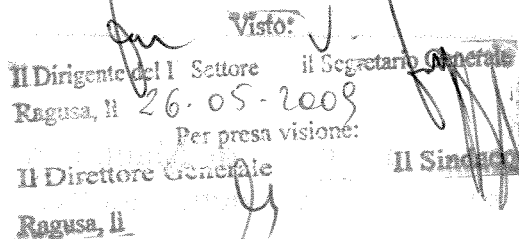 Visto:
Il Dirigente del I Settore il Segretario Generale
Ragusa, lì 26.05.2009
Per presa visione:
Il Direttore Generale Il Sindaco
Ragusa, lì